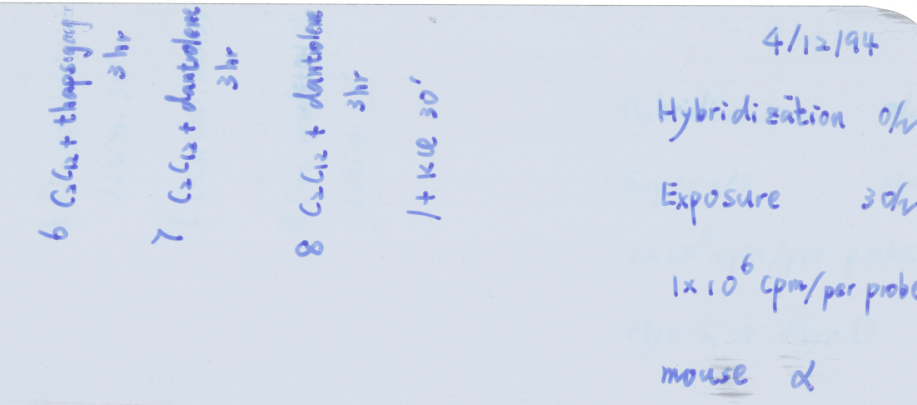 6 C2C12 + thapsigarg
3 hr
7 C2C12 + dantrolene
3 hr
8 C2C12 + dantrolene
3hr
/+ KCl 30'
4/12/94
Hybridization O/N
Exposure 3 O/N
1×10⁶ cpm/per probe
mouse α